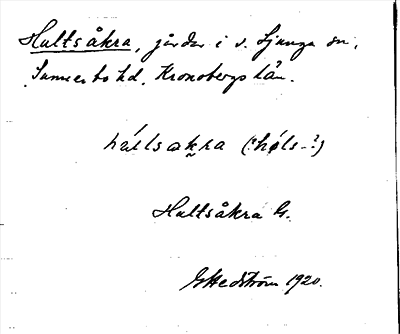 Hultsåkra, gårdar i v. Ljunga sn,
Sunnerbo hd, Kronobergs län.
húllsakra (? høls-?)
Hultsåkra G.
GHedström 1920.